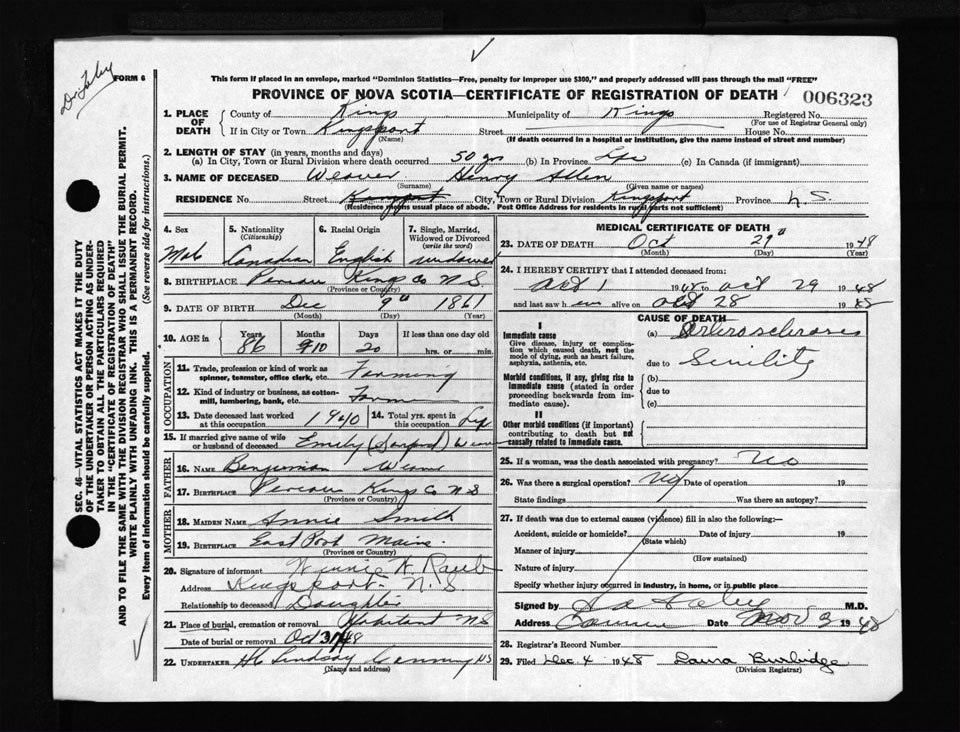 FORM 6
This form if placed in an envelope, marked "Dominion Statistics—Free, penalty for improper use $300," and properly addressed will pass through the mail "FREE"
PROVINCE OF NOVA SCOTIA—CERTIFICATE OF REGISTRATION OF DEATH
006323
1. PLACE OF DEATH County of Kings Municipality of Kings Registered No.
(For use of Registrar General only)
If in City or Town Kingsport Street House No.
(Name) (If death occurred in a hospital or institution, give the name instead of street and number)
2. LENGTH OF STAY (in years, months and days)
(a) In City, Town or Rural Division where death occurred 50 yrs (b) In Province Life (c) In Canada (if immigrant)
3. NAME OF DECEASED Weaver Henry Allen
(Surname) (Given name or names)
RESIDENCE No. Street Kingsport City, Town or Rural Division Kingsport Province N.S.
(Residence means usual place of abode. Post Office Address for residents in rural parts not sufficient)
4. Sex 5. Nationality (Citizenship) 6. Racial Origin 7. Single, Married, Widowed or Divorced (write the word)
Male Canadian English widower
8. BIRTHPLACE Pereau Kings Co N S
(Province or Country)
9. DATE OF BIRTH Dec 9" 1861
(Month) (Day) (Year)
10. AGE in Years Months Days If less than one day old
86 10 20 hrs. or min.
OCCUPATION
11. Trade, profession or kind of work as spinner, teamster, office clerk, etc. Farming
12. Kind of industry or business, as cotton-mill, lumbering, bank, etc. Farm
13. Date deceased last worked at this occupation 1940 14. Total yrs. spent in this occupation Life
15. If married give name of wife or husband of deceased Emily (Sanford) Weaver
FATHER
16. NAME Benjamin Weaver
17. BIRTHPLACE Pereau Kings Co N S
(Province or Country)
MOTHER
18. MAIDEN NAME Annie Smith
19. BIRTHPLACE East Port Maine
(Province or Country)
20. Signature of informant Winnie W.
Address Kingsport N.S.
Relationship to deceased Daughter
21. Place of burial, cremation or removal Habitant NS
Date of burial or removal Oct 31/48
22. UNDERTAKER Lindsay Canning NS
(Name and address)
MEDICAL CERTIFICATE OF DEATH
23. DATE OF DEATH Oct 29" 1948
(Month) (Day) (Year)
24. I HEREBY CERTIFY that I attended deceased from:
Oct 1 1948 to Oct 29 1948
and last saw him alive on Oct 28 1948
CAUSE OF DEATH
I
Immediate cause
Give disease, injury or complication which caused death, not the mode of dying, such as heart failure, asphyxia, asthenia, etc.
(a) Arteriosclerosis
due to Senility
Morbid conditions, if any, giving rise to immediate cause (stated in order proceeding backwards from immediate cause).
(b)
due to
(c)
II
Other morbid conditions (if important) contributing to death but not causally related to immediate cause.
25. If a woman, was the death associated with pregnancy? No
26. Was there a surgical operation? No Date of operation 19
State findings Was there an autopsy?
27. If death was due to external causes (violence) fill in also the following:—
Accident, suicide or homicide? Date of injury 19
(State which)
Manner of injury
(How sustained)
Nature of injury
Specify whether injury occurred in industry, in home, or in public place
Signed by M.D.
Address Canning Date Nov 3 1948
28. Registrar's Record Number
29. Filed Dec. 4 1948 Laura Burbidge
(Division Registrar)
SEC. 46—VITAL STATISTICS ACT MAKES IT THE DUTY
OF THE UNDERTAKER OR PERSON ACTING AS UNDER-
TAKER TO OBTAIN ALL THE PARTICULARS REQUIRED
IN THE "CERTIFICATE OF REGISTRATION OF DEATH"
AND TO FILE THE SAME WITH THE DIVISION REGISTRAR WHO SHALL ISSUE THE BURIAL PERMIT.
WRITE PLAINLY WITH UNFADING INK. THIS IS A PERMANENT RECORD.
Every item of Information should be carefully supplied. (See reverse side for instructions.)